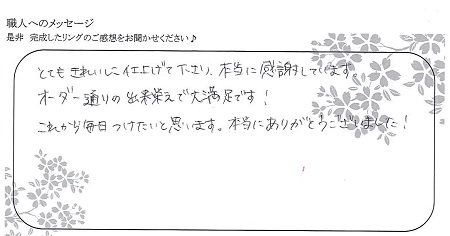 職人へのメッセージ
是非 完成したリングのご感想をお聞かせください♪
とてもきれいに仕上げて下さり、本当に感謝しています。
オーダー通りの出来栄えで大満足です!
これから毎日つけたいと思います。本当にありがとうございました!